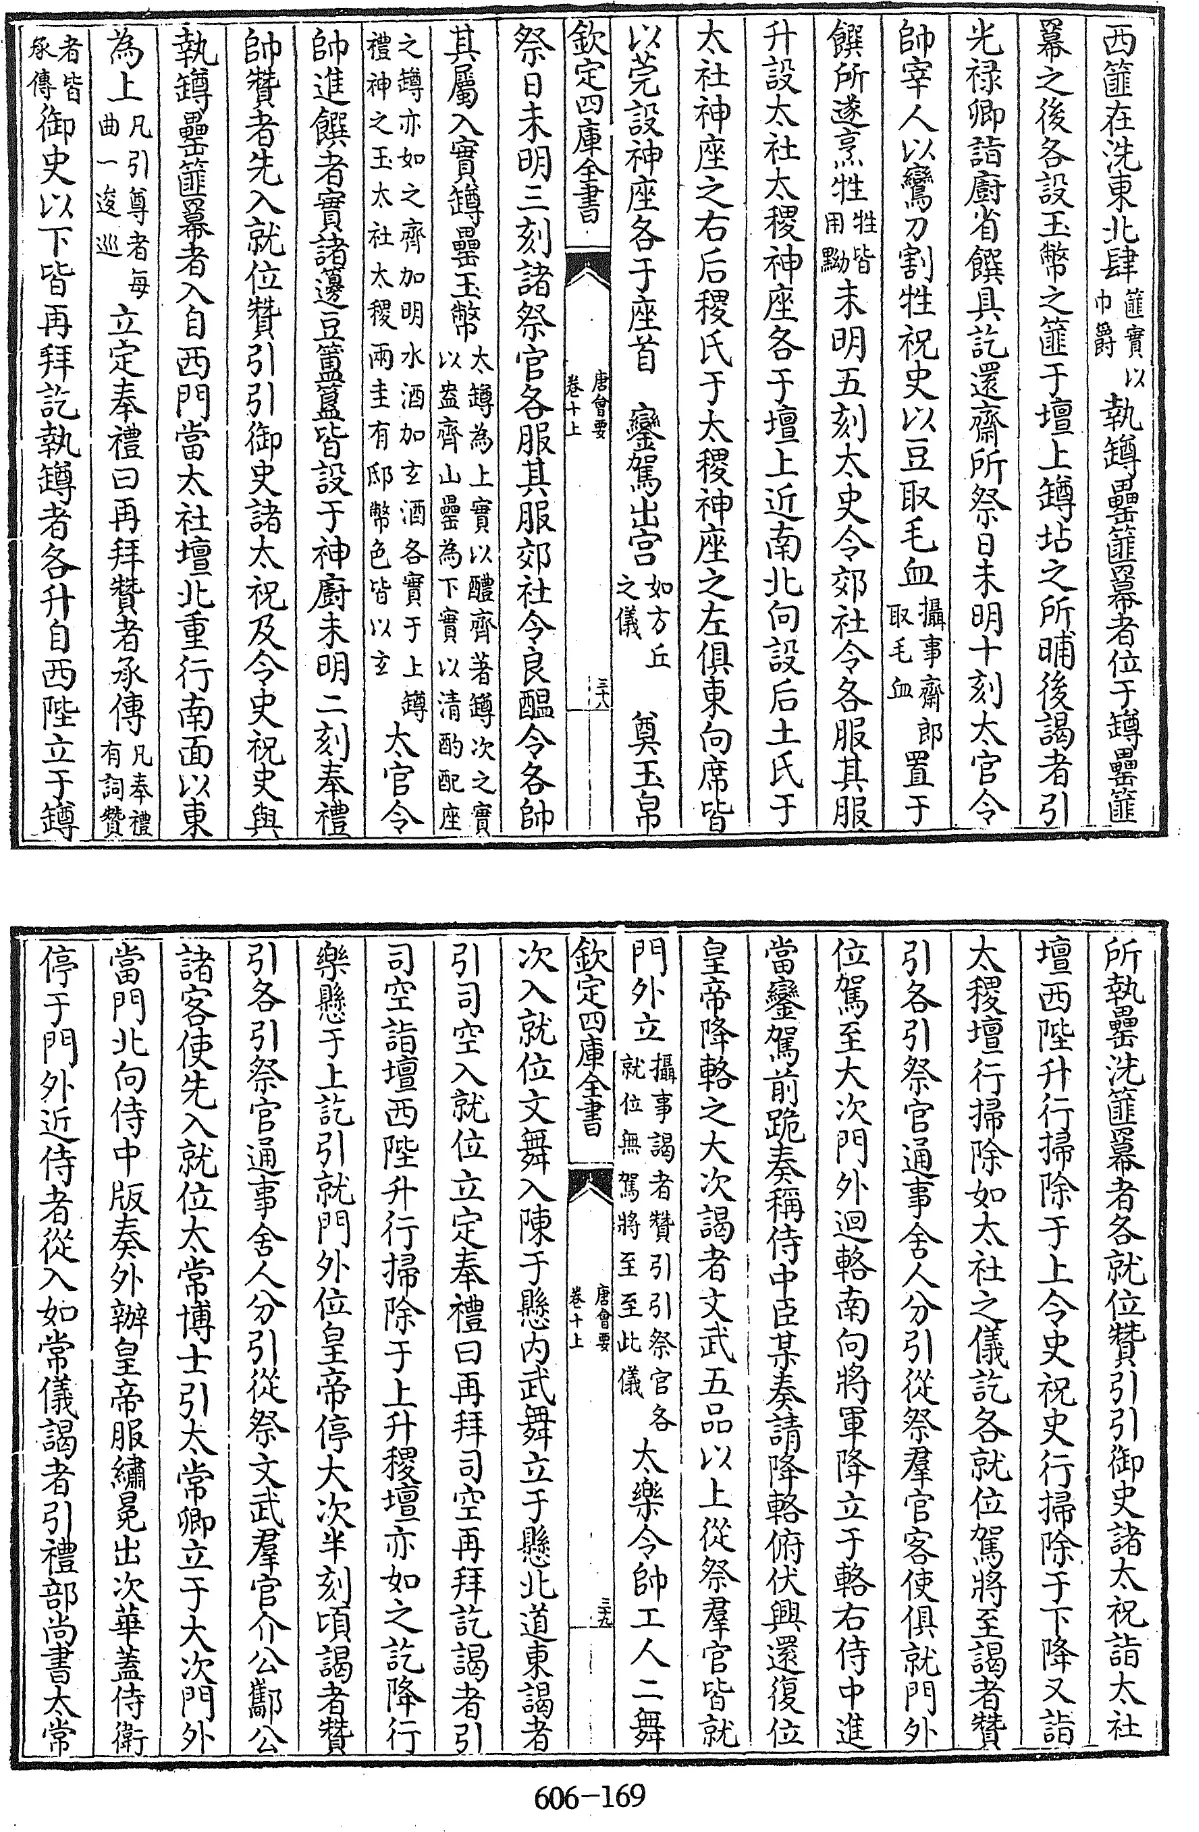 西篚在洗東北肆篚實以巾爵執罇罍篚羃者位于罇罍篚
羃之後各設玉幣之篚于壇上罇坫之所晡後謁者引
光禄卿詣廚省饌具訖還齋所祭日未明十刻太官令
帥宰人以鸞刀割牲祝史以豆取毛血攝事齋郎取毛血置于
饌所遂烹牲牲皆用黝未明五刻太史令郊社令各服其服
升設太社太稷神座各于壇上近南北向設后土氏于
太社神座之右后稷氏于太稷神座之左俱東向席皆
以莞設神座各于座首 鑾駕出宮如方丘之儀 奠玉帛
欽定四庫全書 唐會要 卷十上 三十八
祭日未明三刻諸祭官各服其服郊社令良醖令各帥
其屬入實罇罍玉幣太罇為上實以醴齊著罇次之實以盎齊山罍為下實以清酌配座
之罇亦如之齊加明水酒加玄酒各實于上罇禮神之玉太社太稷兩圭有邸幣色皆以玄太官令
帥進饌者實諸籩豆簠簋皆設于神廚未明二刻奉禮
帥贊者先入就位贊引引御史諸太祝及令史祝史與
執罇罍篚羃者入自西門當太社壇北重行南面以東
為上凡引尊者每曲一逡巡立定奉禮曰再拜贊者承傳凡奉禮有詞贊
者皆承傳御史以下皆再拜訖執罇者各升自西陛立于罇
所執罍洗篚羃者各就位贊引引御史諸太祝詣太社
壇西陛升行掃除于上令史祝史行掃除于下降又詣
太稷壇行掃除如太社之儀訖各就位駕將至謁者贊
引各引祭官通事舍人分引從祭羣官客使俱就門外
位駕至大次門外迴輅南向將軍降立于輅右侍中進
當鑾駕前跪奏稱侍中臣某奏請降輅俯伏興還復位
皇帝降輅之大次謁者文武五品以上從祭羣官皆就
門外立攝事謁者贊引引祭官各就位無駕將至至此儀太樂令帥工人二舞
欽定四庫全書 唐會要 卷十上 三十九
次入就位文舞入陳于懸内武舞立于懸北道東謁者
引司空入就位立定奉禮曰再拜司空再拜訖謁者引
司空詣壇西陛升行掃除于上升稷壇亦如之訖降行
樂懸于上訖引就門外位皇帝停大次半刻頃謁者贊
引各引祭官通事舍人分引從祭文武羣官介公酅公
諸客使先入就位太常博士引太常卿立于大次門外
當門北向侍中版奏外辦皇帝服繡冕出次華蓋侍衛
停于門外近侍者從入如常儀謁者引禮部尚書太常
606-169